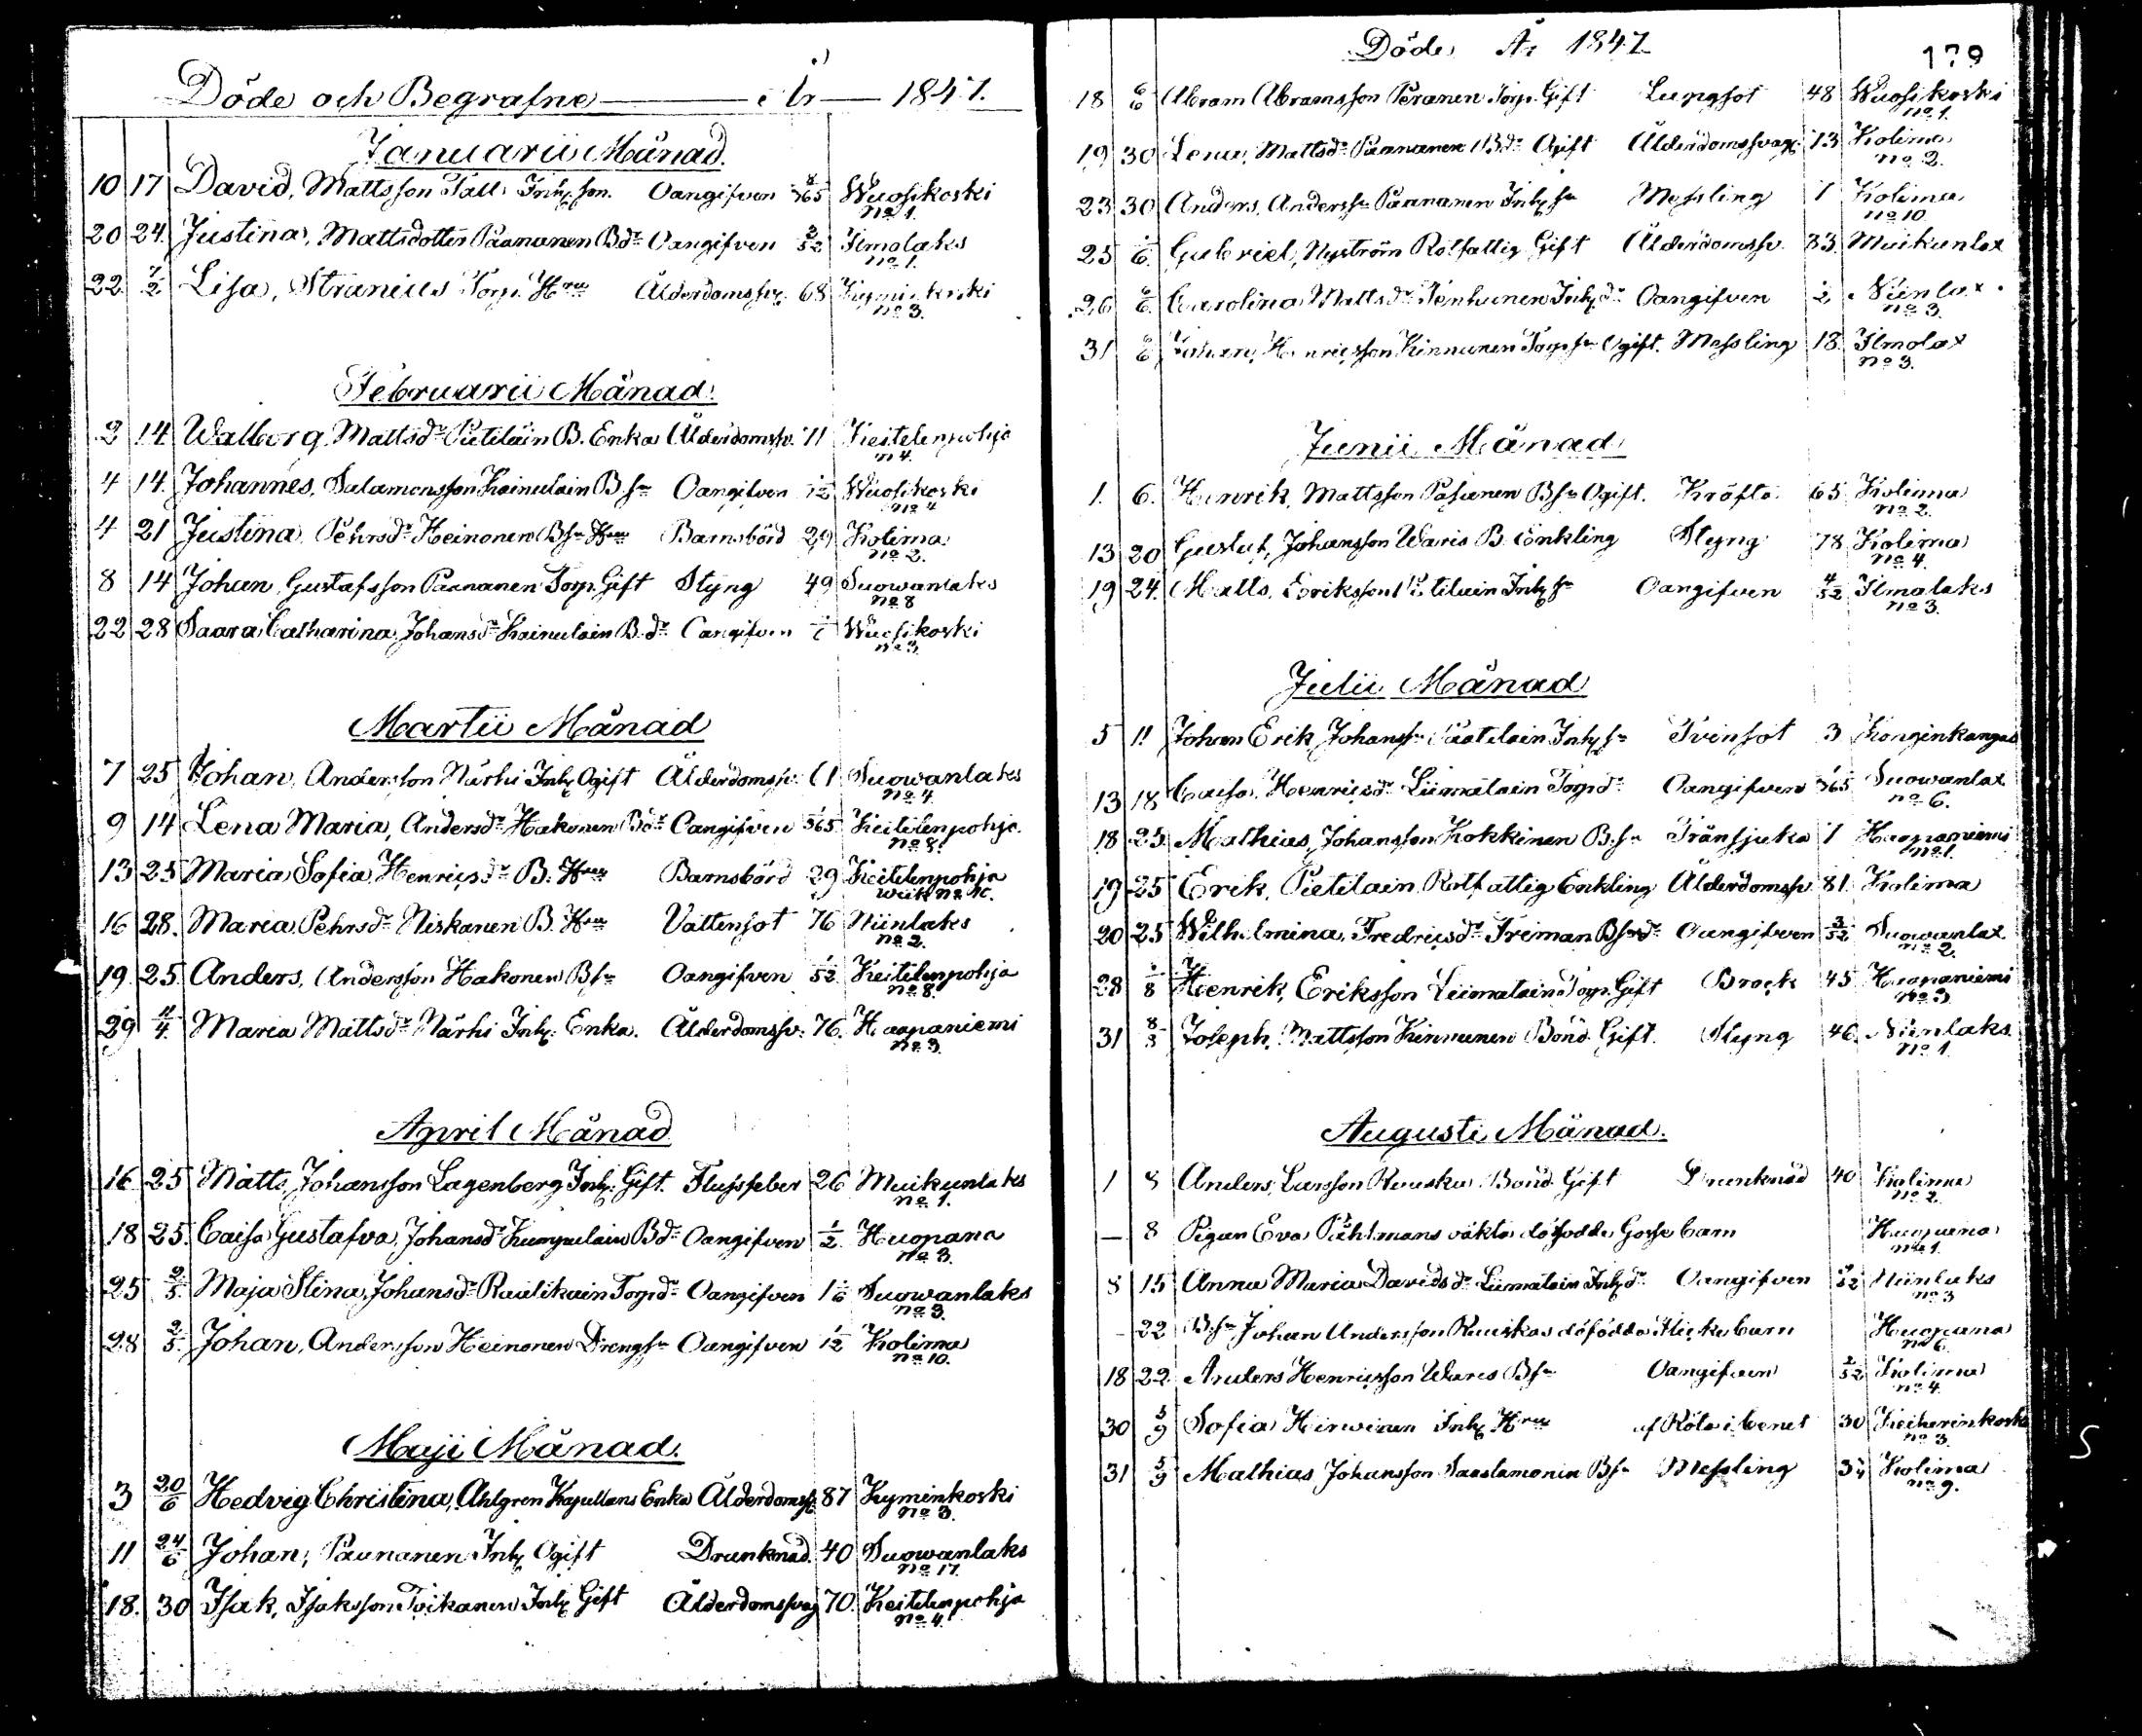 Döde och Begrafne År 1847.
Januarii Månad.
10 17 David, Mattsson Tall Inh. son. Oangifven 8/365 Wuosikoski
no 1.
20 24. Justina, Mattsdotter Paananen Bdr Oangifven 2/52 Ilmolaks
no 1.
22. 7/2 Lisa, Stranius Torp. Hru Ålderdomssv. 68 Kyminkoski
no 3.
Februarii Månad.
2 14 Walborg Mattsdr Pietiläin B. Enka Ålderdomssv. 71 Keitelenpohja
n 4.
4 14. Johannes, Salamonsson Kainulain B sn Oangifven 1/12 Wuosikoski
no 4
4 21 Justina Pehrsdr Heinonen Bsn Hru Barnsbörd 29 Kolima
no 2.
8 14 Johan Gustafsson Paananen Torp. Gift Styng 49 Suowanlaks
no 8
22 28 Saara Catharina Johansdr Kainulain B. dr Oangifven Wuosikoski
no 3.
Martii Månad
7 25 Johan, Andersson Närhi Inh. Ogift Ålderdomssv. 61 Suowanlaks
no 4.
9 14 Lena Maria, Andersdr Hakonen Bdr Oangifven 1/365 Keitelenpohja
no 8.
13 25 Maria Sofia Henricsdr B. Hru Barnsbörd 29 Keitelenpohja
no 10.
16 28. Maria Pehrsdr Niskanen B. Hru Vattensot 76 Niinlaks
no 2.
19. 25. Anders, Andersson Hakonen Bsn Oangifven 1/52 Keitelenpohja
no 8.
29 11/4. Maria Mattsdr Närhi Inh. Enka. Ålderdomssv: 76. Haapaniemi
no 3.
April Månad
16 25 Matts Johansson Lagenberg Inh. Gift. Flussfeber 26 Muikunlaks
no 1.
18 25. Caisa Gustafva, Johansdr Kumpulain Bdr Oangifven 1/2. Huopana
no 3.
25 2/5. Maja Stina, Johansdr Raulikain Torp dr Oangifven 1 1/6 Suowanlaks
no 3.
28 2/5. Johan, Andersson Heinonen Drengsn Oangifven 1/12 Kolima
no 10.
Maji Månad.
3 20/6 Hedvig Christina, Ahlgren Kapellans Enka Ålderdomssv. 87 Kyminkoski
no 3.
11 24/6 Johan, Paananen Inh. Ogift Drunknad. 40 Suowanlaks
no 17.
18. 30 Isak, Isaksson Toikanen Inh. Gift Ålderdomssvag 70. Keitelenpohja
no 4.
Döde År 1847.
179
18 6/6 Abram Abramsson Peranen Torp. Gift Lungsot 48 Wuosikoski
no 1.
19 30 Lena, Mattsdr Paananen Bdr Ogift Ålderdomssvag 73 Kolima
no 2.
23 30 Anders, Anderssn Paananen Inh. sn Messling 7 Kolima
no 10
25 Gabriel, Nyström Rotfattig Gift Ålderdomssv. 83. Muikunlax
26 Carolina Mattsdr Tenhunen Inh. dr Oangifven 1/2 Niinlax.
no 3.
31 Johan, Henricsson Kinnunen Torp. sn Ogift. Messling 18. Ilmolax
no 3.
Junii Månad
1. 6. Henrik, Mattsson Pasanen Bsn Ogift. Kräfta 65 Kolima
no 2.
13 20 Gustaf, Johansson Waris B. Enkling Styng 78 Kolima
no 4.
19 24. Matts, Eriksson Pietilain Inh. sn Oangifven 4/52 Ilmolaks
no 3.
Julii Månad
5 11 Johan Erik, Johanssn Inh. sn Tvinsot 3 Konginkangas
13 18 Caisa. Henricsdr Liimatain Torp. dr Oangifven 1/365 Suowanlax
no 6.
18 25 Mathias, Johansson Kokkinen B. sn Tränsjuka 7 Haapaniemi
no 1.
19 25 Erik, Pietilain Rotfattig Enkling Ålderdomssv. 81. Kolima
20 25 Wilhelmina, Fredricsdr Friman Oangifven 3/52 Suowanlax
no 2.
28 1/8 Henrik, Eriksson Liimatain Torp. Gift Brock 45 Haapaniemi
no 3.
31 8/8 Joseph, Mattsson Kinnunen Bond. Gift. Styng 46. Niinlaks
no 1.
Augusti Månad.
1 8 Anders, Larsson Rauska Bond. Gift Drunknad 40 Kolima
no 2.
— 8 Pigan Eva Pehlmans oäkta dödfödda Gosse barn Huopana
no 1.
8 15 Anna Maria Davidsdr Liimatain Inh. dr Oangifven Niinlaks
no 3
– 22 B. sn Johan Andersson Rauskas dödfödda Flicke barn Huopana
no 6.
18 22. Anders Henricsson Waris Bsn Oangifven 2/52 Kolima
no 4.
30 5/9 Sofia Hirwinen Inh. Hru af Röta i benet 30 Keiherinkoski
no 3.
31 5/9 Mathias Johansson Saastamoinen Bsn Messling Kolima
no 9.